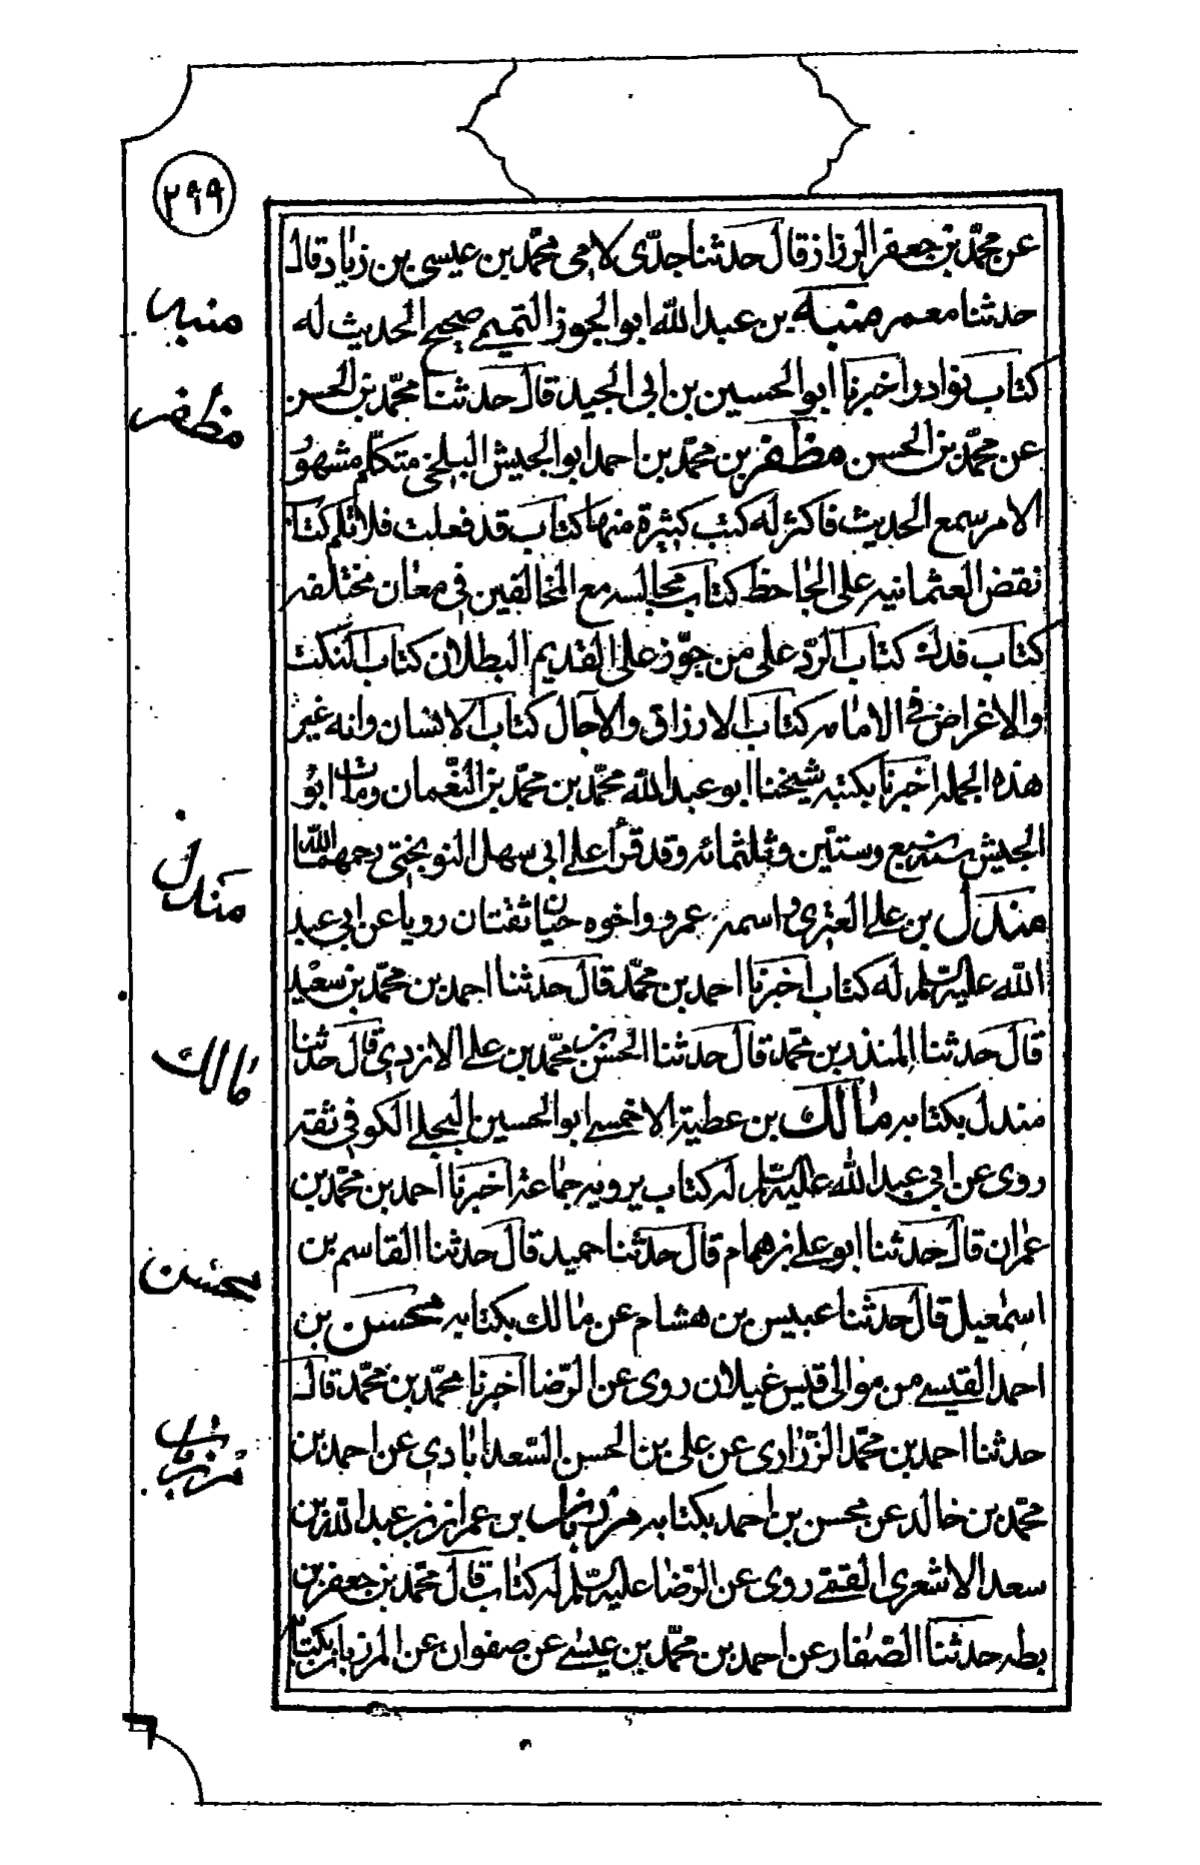 ٢٩٩
عن محمّد بن جعفر الرزاز قال حدثنا جدّى لامى محمّد بن عيسى بن زياد قال
حدثنا معمر منبه بن عبد الله ابو الجوز التميمى صحيح الحديث له
كتاب نوادر اخبرنا ابو الحسين بن ابى الجيد قال حدثنا محمّد بن الحسن
عن محمّد بن الحسن مظفر بن محمّد بن احمد ابو الجيش البلخى متكلم مشهور
الامر سمع الحديث فاكثر له كتب كثيرة منها كتاب قد فعلت فلا تلم كتاب
نقض العثمانيه على الجاحظ كتاب مجالسه مع المخالفين فى معان مختلفه
كتاب فدك كتاب الردّ على من جوّز على القديم البطلان كتاب النكت
والاغراض فى الامامه كتاب الارزاق والآجال كتاب الانسان وانه غير
هذه الجمله اخبرنا بكتبه شيخنا ابو عبد الله محمّد بن محمّد بن النّعمان ومات ابو
الجيش سنه سبع وستّين وثلثمائه وقد قرأ على ابى سهل النوبختى رحمهما الله
مندل بن على العترى واسمه عمرو واخوه حيان ثقتان رويا عن ابى عبد
الله عليه السّلم له كتاب اخبرنا احمد بن محمّد قال حدثنا احمد بن محمّد بن سعيد
قال حدثنا المنذر بن محمّد قال حدثنا الحسن بن محمّد بن على الازدى قال حدثنا
مندل بكتابه مالك بن عطية الاخمسى ابو الحسين البجلى الكوفى ثقه
روى عن ابى عبد الله عليه السّلم له كتاب يرويه جماعة اخبرنا احمد بن محمّد بن
عمران قال حدثنا ابو على بن همام قال حدثنا حميد قال حدثنا القاسم بن
اسمعيل قال حدثنا عبيس بن هشام عن مالك بكتابه محسن بن
احمد القيسى من موالى قيس غيلان روى عن الرّضا اخبرنا محمّد بن محمّد قال
حدثنا احمد بن محمّد الزّرارى عن على بن الحسن السّعد ابادى عن احمد بن
محمّد بن خالد عن محسن بن احمد بكتابه مرزبان بن عمران بن عبد الله بن
سعد الاشعرى القمى روى عن الرّضا عليه السّلم له كتاب قال محمّد بن جعفر بن
بطه حدثنا الصّفار عن احمد بن محمّد بن عيسى عن صفوان عن المرزبان بكتابه
منبه
مظفر
مندل
مالك
محسن
مرزبان